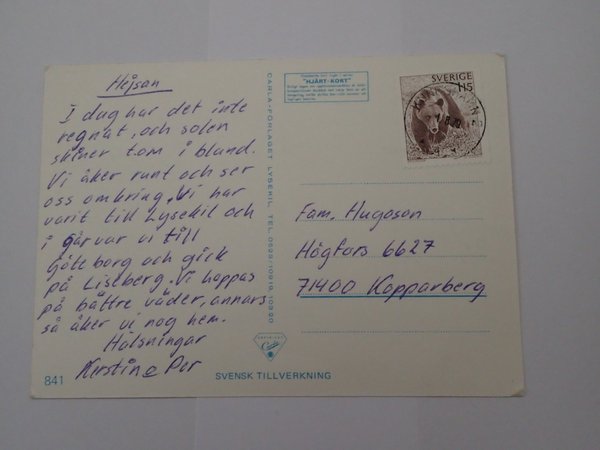 Hejsan
I dag har det inte
regnat, och solen
skiner tom i bland.
Vi åker runt och ser
oss omkring. Vi har
varit till Lysekil och
i går var vi till
Göteborg och gick
på Liseberg. Vi hoppas
på bättre väder, annars
så åker vi nog hem.
Hälsningar
Kerstin o Per
841
SVENSK TILLVERKNING
CARLA-FÖRLAGET LYSEKIL TEL. 0523/10919, 10920
"HJÄRT-KORT"
SVERIGE
115
Fam. Hugoson
Högfors 6627
71400 Kopparberg